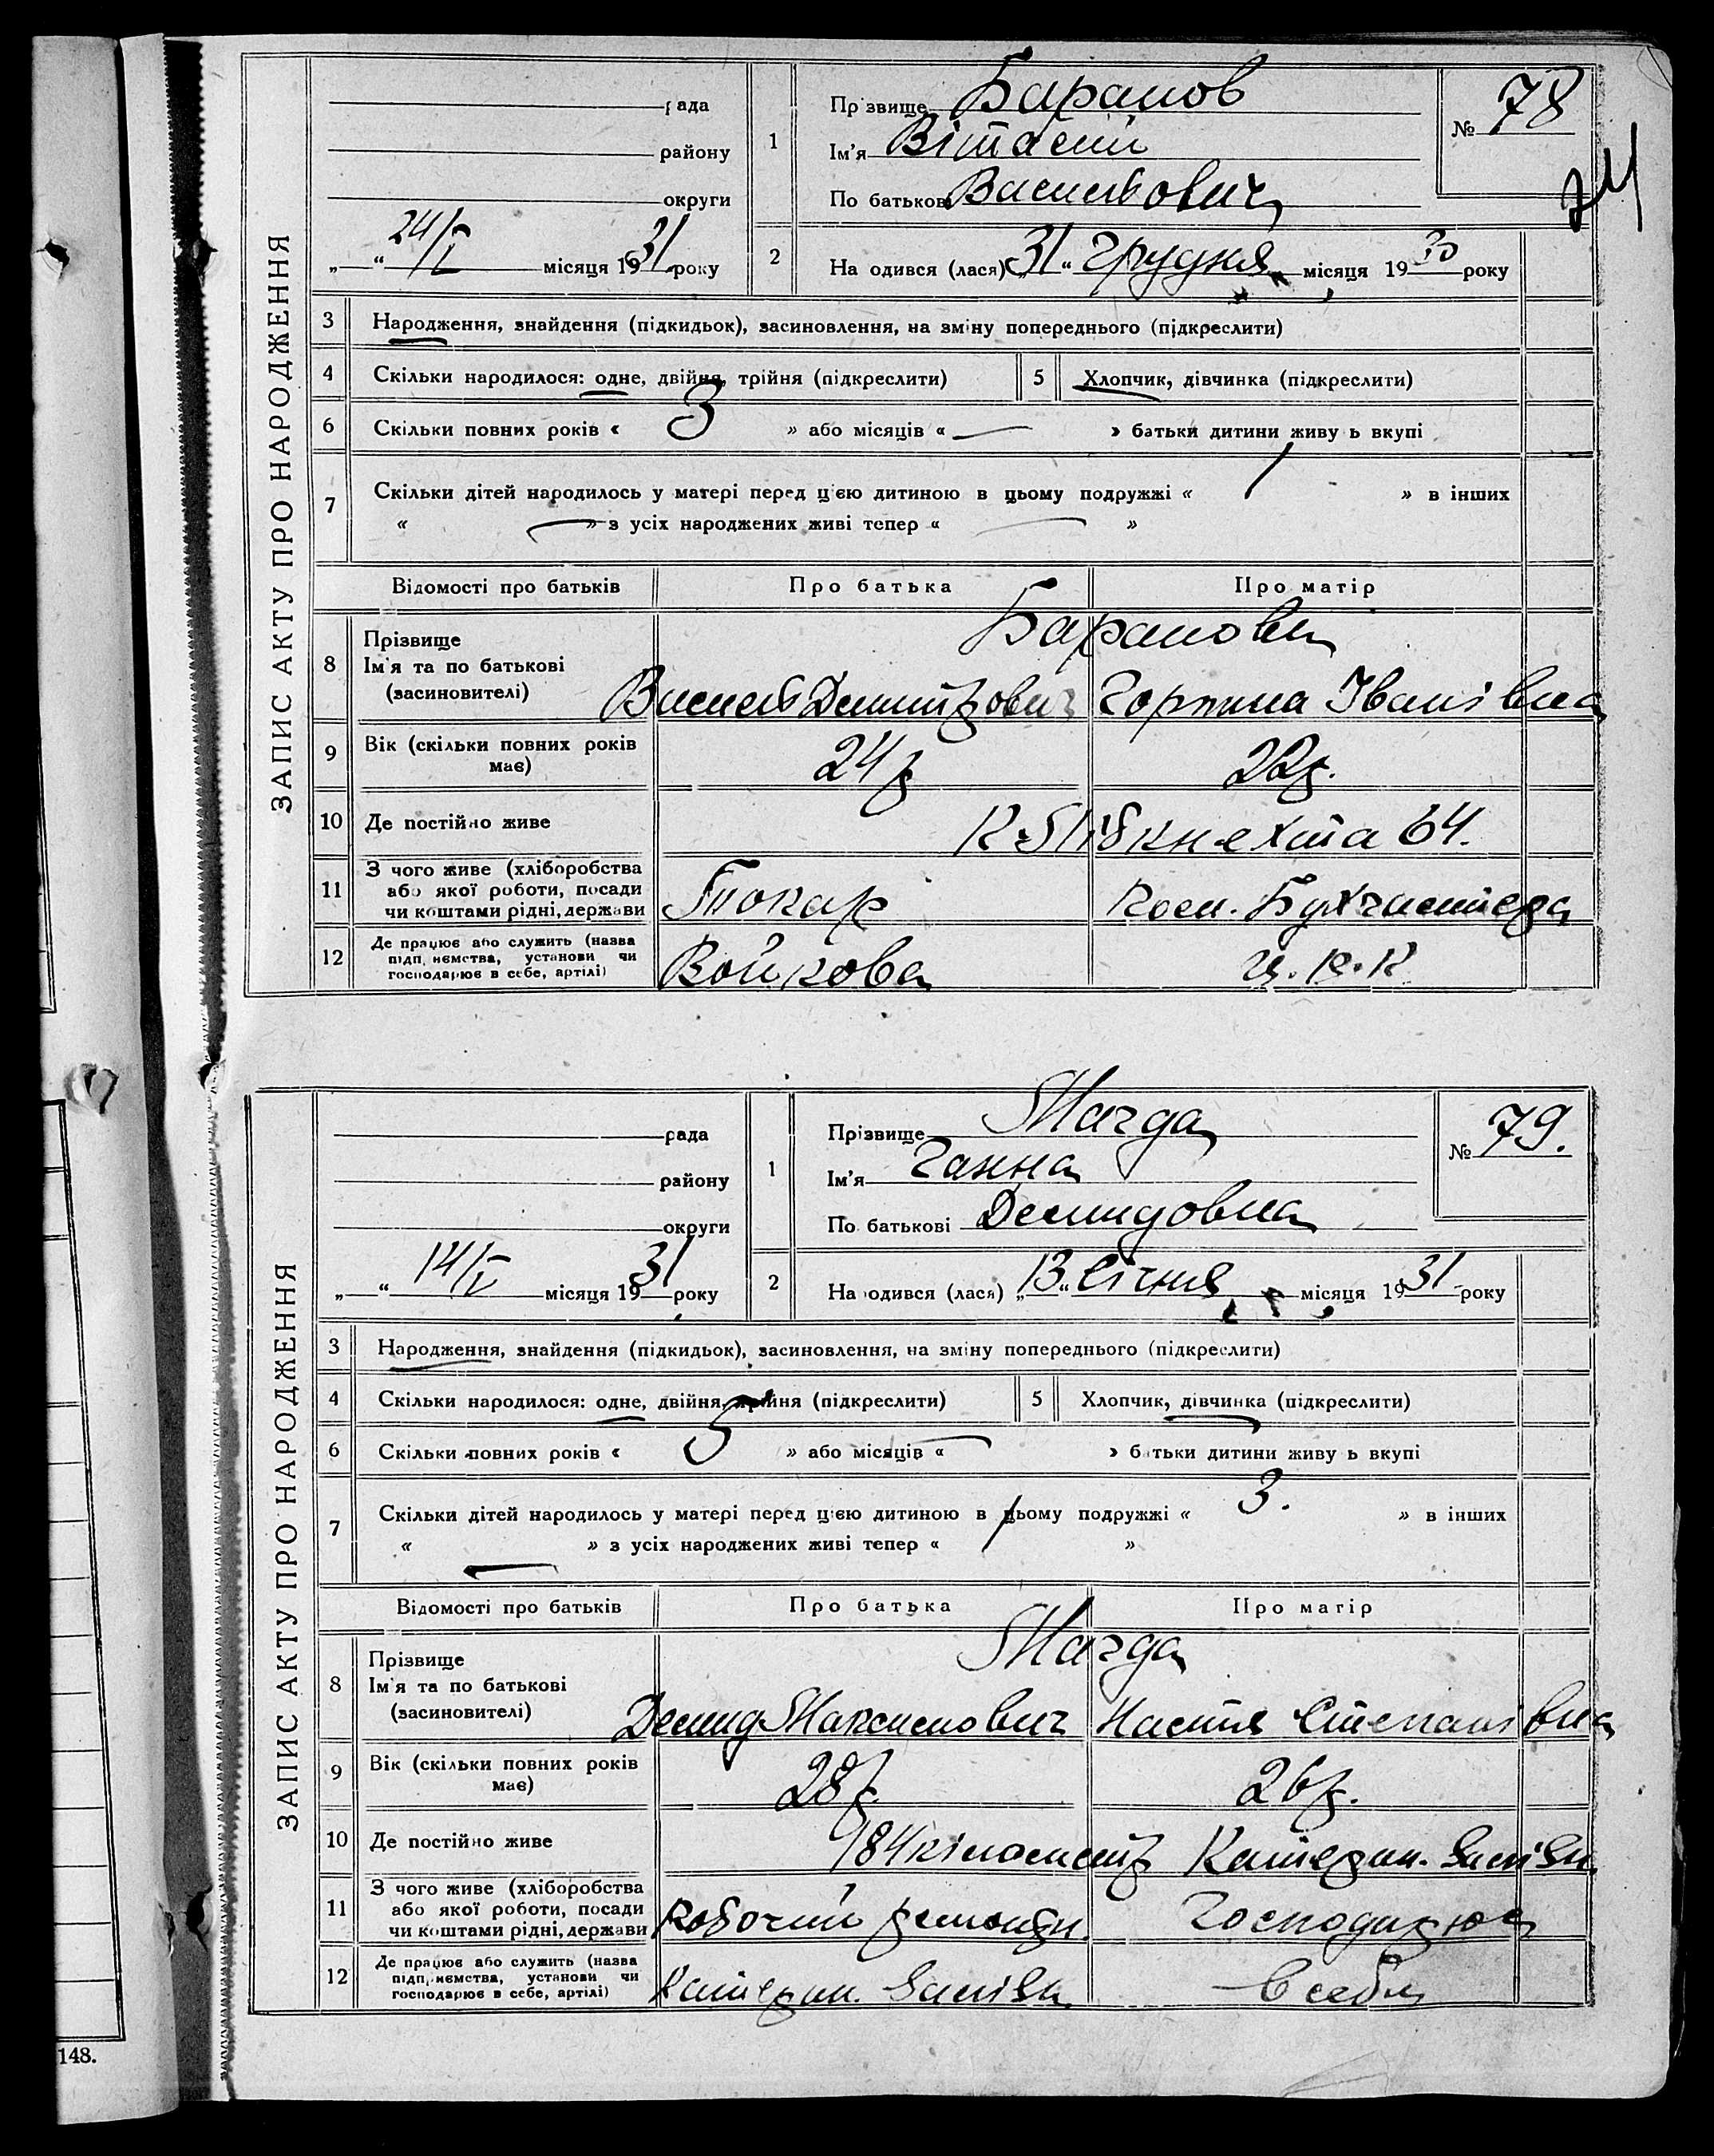 ЗАПИС АКТУ ПРО НАРОДЖЕННЯ
рада
району
округи
24/I місяця 1931 року
1
Прізвище Баранов
Ім'я Віталій
По батькові Васильович
№ 78
74
2
Народився (лася) „31“ грудня місяця 1930 року
3 Народження, знайдення (підкидьок), засиновлення, на зміну попереднього (підкреслити)
4 Скільки народилося: одне, двійня, трійня (підкреслити) 5 Хлопчик, дівчинка (підкреслити)
6 Скільки повних років « 3 » або місяців « — » батьки дитини живуть вкупі
7 Скільки дітей народилось у матері перед цією дитиною в цьому подружжі « 1 » в інших
« — » з усіх народжених живі тепер « — »
Відомості про батьків Про батька Про матір
8 Прізвище
Ім'я та по батькові
(засиновителі)
Баранови
Василь Дмитрович Горпина Іванівна
9 Вік (скільки повних років має) 24 р 22 р.
10 Де постійно живе К Лібкнехта 64.
11 З чого живе (хліборобства
або якої роботи, посади
чи коштами рідні, держави
Токар Бухгалтера
12 Де працює або служить (назва
підприємства, установи чи
господарює в себе, артілі)
Войкова Ц.Р.К
ЗАПИС АКТУ ПРО НАРОДЖЕННЯ
рада
району
округи
„ “ 14/I місяця 1931 року
1
Прізвище Магда
Ім'я Ганна
По батькові Демидовна
№ 79.
2
Народився (лася) „13“ Січня місяця 1931 року
3 Народження, знайдення (підкидьок), засиновлення, на зміну попереднього (підкреслити)
4 Скільки народилося: одне, двійня, трійня (підкреслити) 5 Хлопчик, дівчинка (підкреслити)
6 Скільки повних років « 5 » або місяців « — » батьки дитини живуть вкупі
7 Скільки дітей народилось у матері перед цією дитиною в цьому подружжі « 3. » в інших
« — » з усіх народжених живі тепер « 1 »
Відомості про батьків Про батька Про матір
8 Прізвище
Ім'я та по батькові
(засиновителі)
Магда
Демид Максимович Настя Степанівна
9 Вік (скільки повних років має) 28 р. 26 р.
10 Де постійно живе 184 кілометр Катерин. Залізн.
11 З чого живе (хліборобства
або якої роботи, посади
чи коштами рідні, держави
Робочий ремонтн. Господарює
12 Де працює або служить (назва
підприємства, установи чи
господарює в себе, артілі)
Катерин. Залізн в себя
148.